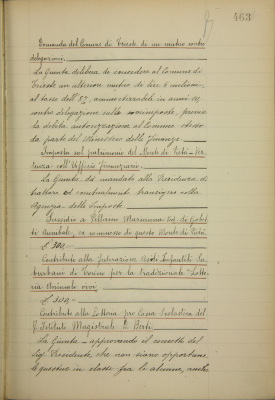 463
Domanda del Comune di Trieste di un mutuo contro
delegazioni.
La Giunta delibera di concedere al Comune di
Trieste un ulteriore mutuo di lire 6 milioni,
al tasso dell' 8%, ammortizzabile in anni
contro delegazione sulla sovrimposta, previa
la debita autorizzazione al Comune stesso
da parte del Ministero delle Finanze.
Imposta sul patrimonio del Monte di Pietà -
coll'Ufficio Finanziario.
La Giunta dà mandato alla Presidenza di
trattare ed eventualmente transigere colla
Agenzia delle Imposte.
Sussidio a Marianna Ved. di
Annibale, ex commesso di questo Monte di Pietà.
£ 300,—
Contributo alla Federazione Asili Infantili Su-
burbani di Torino per la tradizionale Lotte-
ria Animali vivi.
£ 300,—
Contributo alla Lotteria pro Cassa Scolastica del
R. Istituto Magistrale D. Berti.
La Giunta — approvando il concetto del
Sig. Presidente, che non siano opportune
le questue in classe fra le alunne, anche